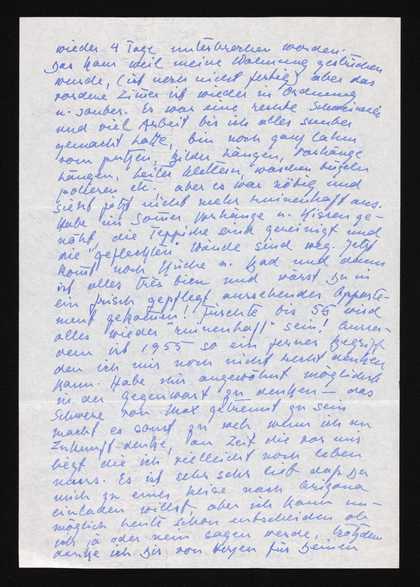 wieder 4 Tage unterbrochen worden.
Das kam weil meine Wohnung gestrichen
wurde, (ist noch nicht fertig) aber das
vordere Zimmer ist wieder in Ordnung
u. sauber. Es war eine rechte Schweinerei
und viel Arbeit bis ich alles sauber
gemacht hatte, bin noch ganz lahm
vom putzen, Bilder hängen, Vorhänge
hängen, Leiter klettern, waschen bügeln
polieren etc. aber es war nötig und
sieht jetzt nicht mehr ruinenhaft aus.
Habe im Sommer Vorhänge u. Kissen ge-
näht, die Teppiche sind gereinigt und
die "gefleckten" Wände sind weg. Jetzt
kommt noch Küche u. Bad und dann
ist alles très bien und wärst Du in
ein frisch gepflegt aussehendes Apparte-
ment gekommen! Fürchte bis 56 wird
alles wieder "ruinenhaft" sein! Ausser-
dem ist 1955 so ein ferner Begriff
den ich mir noch nicht recht denken
kann. Habe mir angewöhnt möglichst
in der Gegenwart zu denken — das
Schwere von Max getrennt zu sein
macht es sonst zu weh wenn ich an
Zukunft denke, an Zeit die vor uns
liegt die ich vielleicht noch leben
muss. Es ist sehr sehr lieb dass Du
mich zu einer Reise nach Arizona
einladen willst, aber ich kann un-
möglich heute schon entscheiden ob
ich ja oder nein sagen werde, trotzdem
danke ich Dir von Herzen für Deinen